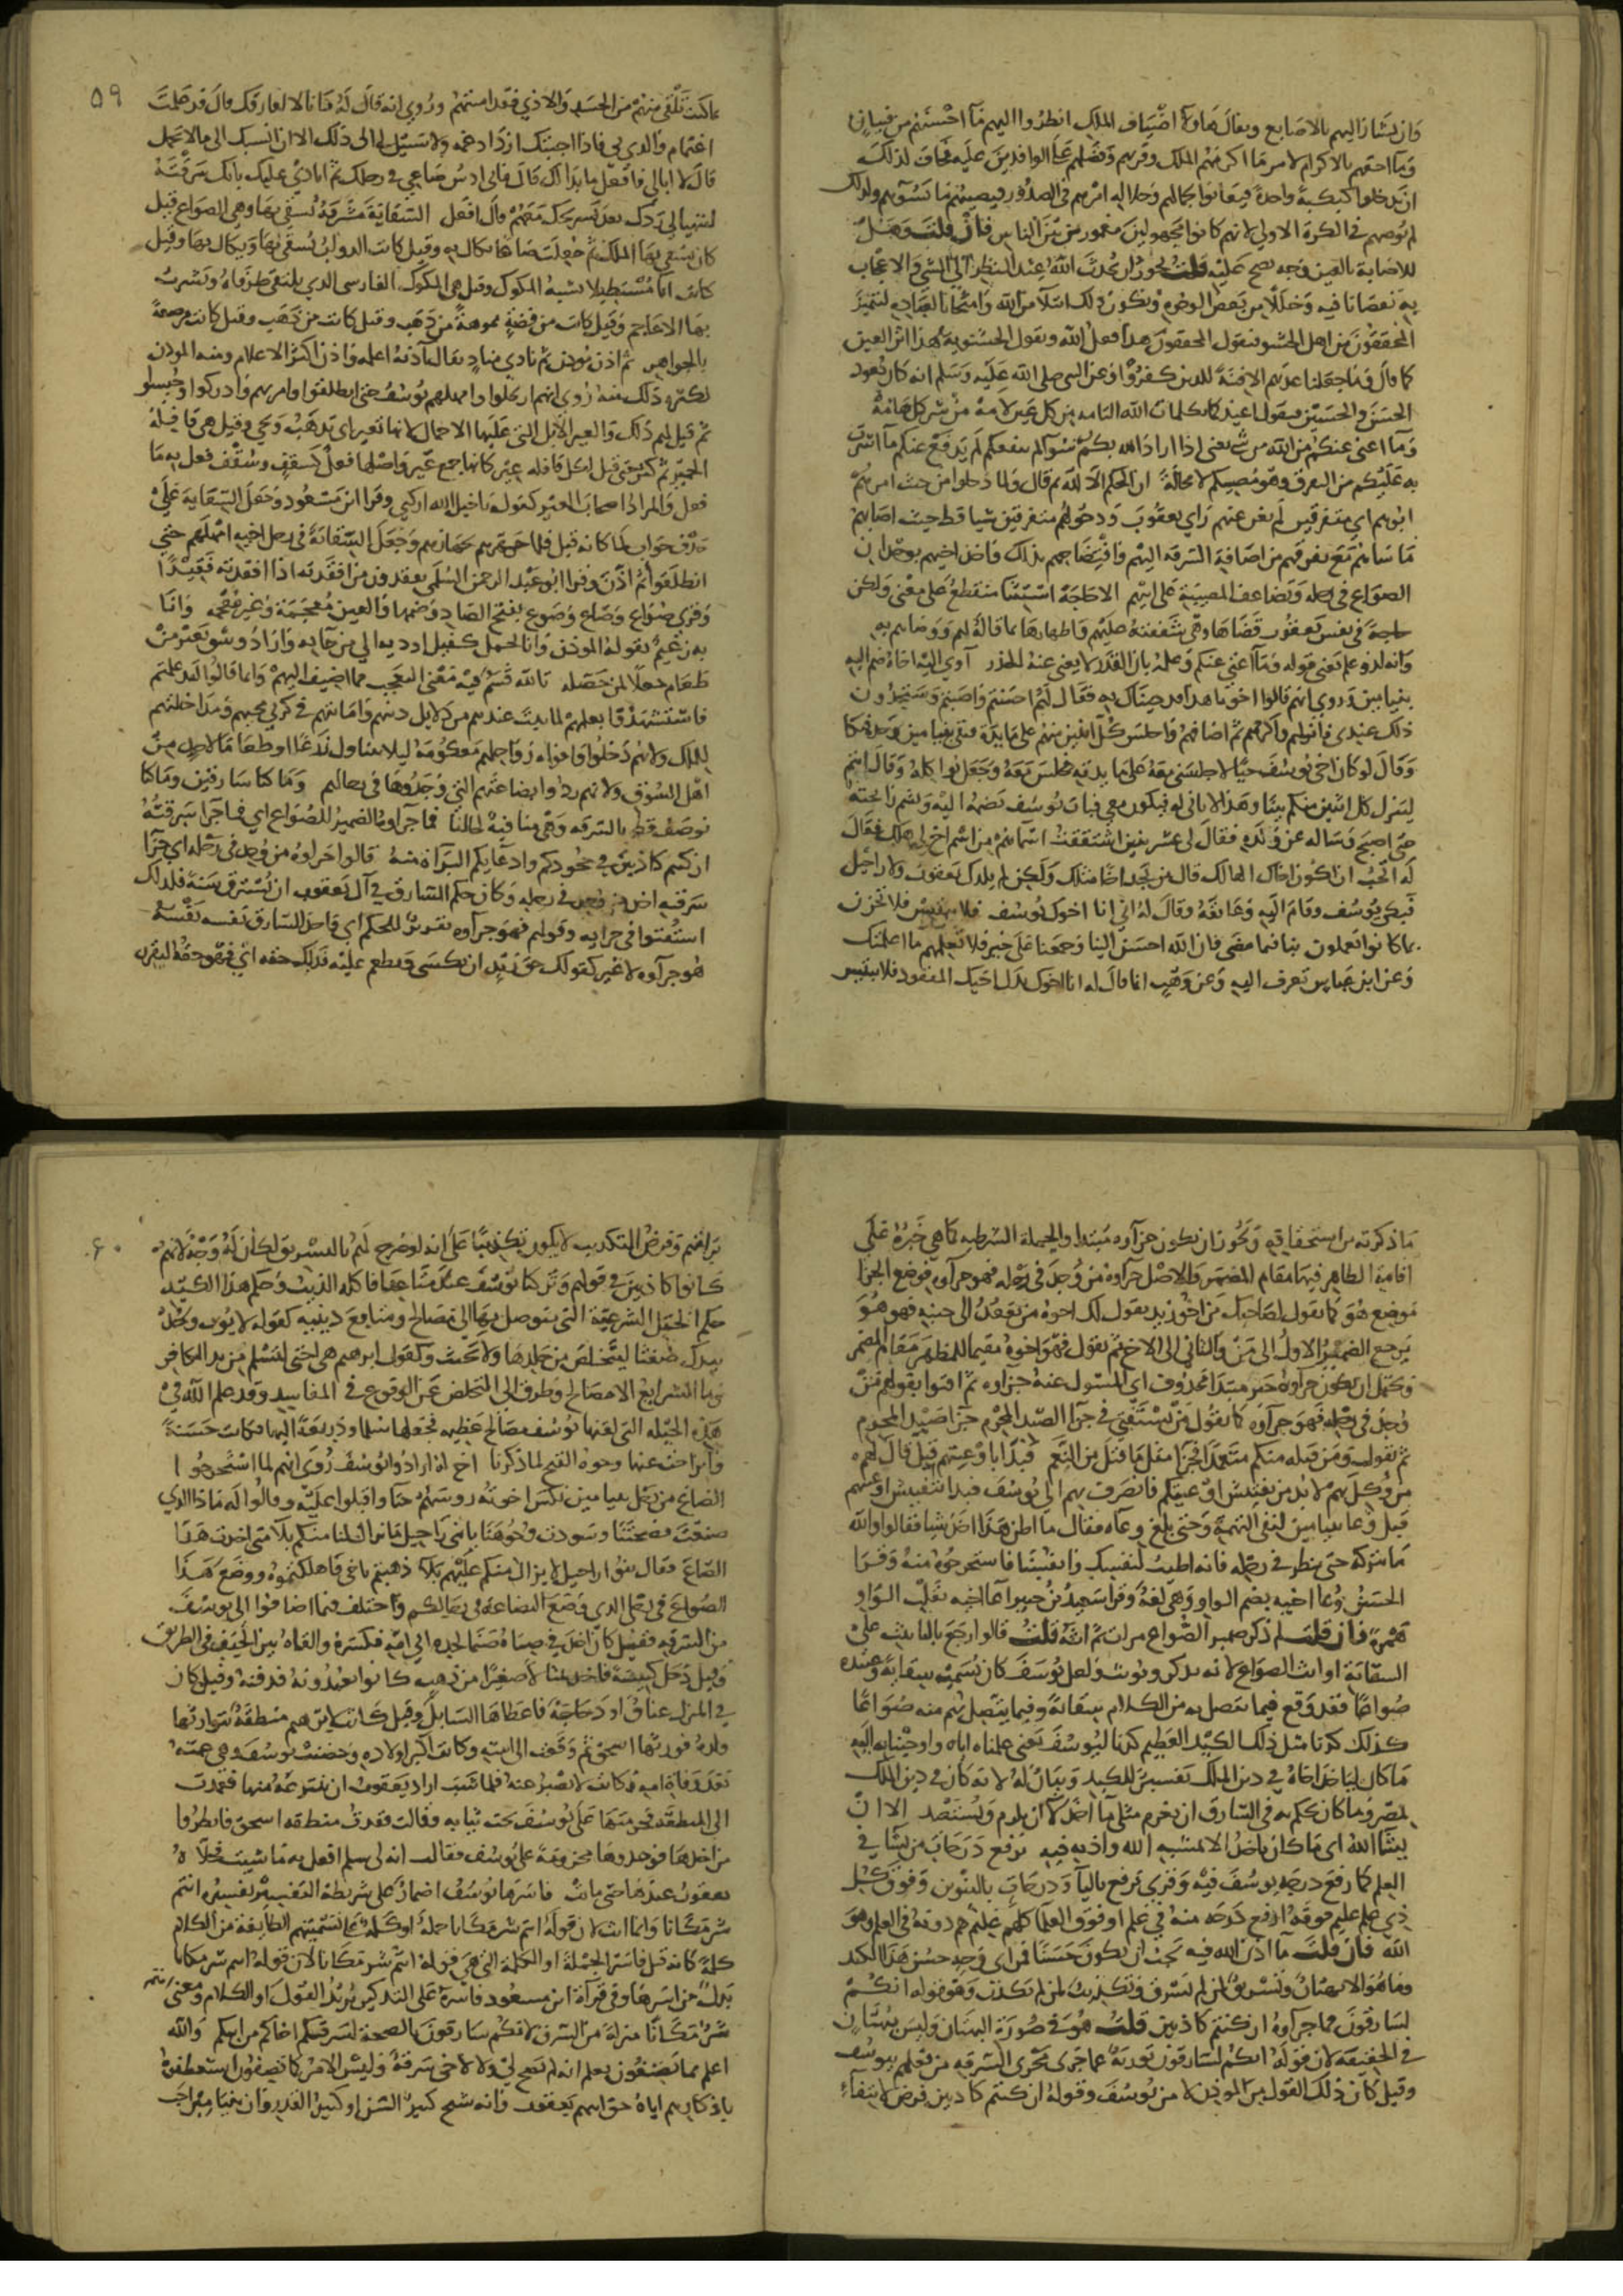 وان يشار اليهم بالاصابع ويقال هاولاء اضياف الملك انظروا اليهم ما احسنهم من فتيان
وما احقهم بالاكرام لامر ما اكرمهم الملك وقربهم وفضلهم على الوافدين عليه فخاف لذلك
ان يدخلوا كبكبة واحدة فيعانوا لجمالهم وجلالة امرهم في الصدور فيصيبهم ما يسوهم ولذلك
لم يوصهم في الكرة الاولى لانهم كانوا مجهولين مغمورين بين الناس فان قلت وهل
للاصابة بالعين وجه تصح عليه قلت يجوز ان يحدث الله عند النظر الى الشي والاعجاب
به نقصانا فيه وخللا من بعض الوجوه ويكون ذلك ابتلا من الله وامتحانا لعباده ليتميز
المحققون من اهل الحشو فيقول المحقق هذا فعل الله ويقول الحشوي هذا اثر العين
كما قال وما جعلنا عدتهم الا فتنة للذين كفروا وعن النبي صلى الله عليه وسلم انه كان يعوذ
الحسن والحسين فيقول اعيذكما بكلمات الله التامه من كل عين لامة من شر كل هامة
وما اغنى عنكم من الله من شى يعنى اذا اراد الله بكم سوا لم ينفعكم لم يدفع عنكم ما اشرت
به عليكم من التفرق وهو مصيبكم لا محالة ان الحكم الا لله ثم قال ولما دخلوا من حيث امرهم
ابوهم اي متفرقين لم يغن عنهم راي يعقوب ودخولهم متفرقين شيا قط حيث اصابهم
ما ساهم مع تفرقهم من اضافة السرقة اليهم وافتضاحهم بذلك واخذ اخيهم بوجدان
الصواع في رحله وتضاعف المصيبة على ابيهم الا حاجة استثنا منقطع على معنى ولكن
حاجة في نفس يعقوب قضاها وهي شفقته عليهم واظهارها بما قاله لهم ووصاهم به
وانه لذو علم يعني قوله وما اغني عنكم وعلمه بان القدر لا يغني عنه الحذر آوى اليه اخاه ضم اليه
بنيامين وروي انهم قالوا اخونا هذا قد جيناك به فقال لهم احسنتم واصبتم وستجدون
ذلك عندي فانزلهم واكرمهم ثم اضافهم واجلس كل اثنين منهم على مايدة فبقي بنيامين وحده فبكا
وقال لو كان اخي يوسف حيا لاجلسني معه على مايدته فجلس معه وجعل يواكله وقال انتم
لينزل كل اثنين منكم بيتا وهذا لا ثاني له فيكون معي فبات يوسف يضمه اليه ويشم رايحته
حتى اصبح وساله عن ولده فقال لي عشر بنين اشتققت اسماهم من اسم اخ لي هلك فقال
له اتحب ان اكون اخاك بدل الهالك قال من يجد اخا مثلك ولكن لم يلدك يعقوب ولا راحيل
فبكى يوسف وقام اليه وعانقه وقال له اني انا اخوك يوسف فلا تبتيس فلا تحزن
بما كانوا يعملون بنا فيما مضى فان الله احسن الينا وجمعنا على خير فلا تعلمهم ما اعلمتك
وعن ابن عباس تعرف اليه وعن وهب انما قال له انا اخوك بدل اخيك المفقود فلا تبتيس
٥٩
بما كنت تلقى منهم من الحسد والاذي فقد امنتهم وروي انه قال له فانا لا افارقك قال قد علمت
اغتمام والدي بي فاذا احبستك ازداد غمه ولا سبيل لي الى ذلك الا ان انسبك الى ما لا يجمل
قال لا ابالي فافعل ما بدا لك قال فاني ادس صاعي في رحلك ثم انادي عليك بانك سرقته
ليتهيا لي ردك بعد تسريحك معهم قال افعل السقاية مشربة يسقي بها وهي الصواع قيل
كان يسقي بها الملك ثم جعلت صاعا يكال به وقيل كانت الدواب تسقى بها ويكال بها وقيل
كانت انا مستطيلا يشبه المكوك وقيل هي المكوك الفارسي الذي يلتقي طرفاه وتشرب
بها الاعاجم وقيل كانت من فضة مموهة من ذهب وقيل كانت من ذهب وقيل كانت مرصعة
بالجواهر ثم اذن موذن ثم نادي مناد يقال آذنه اعلمه واذن اكثر الاعلام ومنه الموذن
لكثره ذلك منه روى انهم ارتحلوا وامهلهم يوسف حتى انطلقوا وامر بهم فادركوا وحبسوا
ثم قيل لهم ذلك والعير الابل التي عليها الاحمال لانها تعير اي تذهب وتجي وقيل هي قافلة
الحمير ثم كثر حتى قيل لكل قافله عير كانها جمع عير واصلها فعل كسقف وسقف فعل به ما
فعل والمراد اصحاب العير كقوله ياخيل الله اركبي وقرا ابن مسعود وجعل السقاية على
حذف جواب لما كانه قيل فلما جهزهم بجهازهم وجعل السقاية في رحل اخيه امهلهم حتى
انطلقوا ثم اذن وقرا ابو عبد الرحمن السلمي تفقدون من افقدته اذا افقدته فقيدا
وقرى صواع وصاع وصوع بفتح الصاد وضمها والعين معجمة وغير معجمه وانا
به زعيم يقوله الموذن وانا بحمل كفيل اوديه الي من جا به واراد وسق بعير من
طعام جعلا لمن حصله تالله قسم فيه معنى التعجب مما اضيف اليهم وانما قالوا لقد علمتم
فاستشهدوا بعلمهم لما ثبت عندهم من دلايل دينهم وامانتهم في كرتي مجيهم ومداخلتهم
للملك ولانهم دخلوا وافواه رواحلهم معكومة ليلا يتناول زرعا او طعاما لاحد من
اهل السوق ولانهم ردوا بضاعتهم التي وجدوها في رحالهم وما كنا سارقين وما كنا
نوصف قط بالسرقه وهي منافية لحالنا فما جزآوه الضمير للصواع اي فما جزا سرقته
ان كنتم كاذبين في جحودكم وادعايكم البراة منه قالوا جزاوه من وجد في رحله اي جزآ
سرقته اخذ من وجد في رحله وكان حكم السارق في آل يعقوب ان يسترق سنة فلذلك
استفتوا في جزايه وقولهم فهو جزآوه تقرير للحكم اي فاخذ السارق نفسه نفسه
هو جزآوه لا غير كقولك حق زيد ان يكسى ويطعم عليه فذلك حقه اي فهو حقه ليقرر
ما ذكرته من استحقاقه ويجوز ان يكون جزآوه مبتدا والجملة الشرطيه كما هي خبره على
اقامة الظاهر فيها مقام المضمر والاصل جزآوه من وجد في رحله فهو جزآوه فوضع الجزا
موضع هو كما تقول لصاحبك من اخو زيد يقول لك اخوه من يقعد الى جنبه فهو هو
يرجع الضمير الاول الى من والثاني الى الاخ ثم تقول فهو اخوه مقيما للمظهر مقام المضمر
ويحتمل ان يكون جزآوه خبر مبتدا محذوف اي المسئول عنه جزاوه ثم افتوا بقولهم من
وجد في رحله فهو جزآوه كما يقول من يستفتي في جزا الصيد المحرم جزا صيد المحرم
ثم يقول ومن قتله منكم متعمدا فجزا مثل ما قتل من النعم فبدا باوعيتهم قيل قال لهم
من وكل بهم لا بد من تفتيش اوعيتكم فانصرف بهم الى يوسف فبدا بتفتيش اوعيتهم
قبل وعا بنيامين لنفى التهمة وحتى بلغ وعآه فقال ما اظن هذا اخذ شيا فقالوا والله
ما نتركه حتى ننظر في رحله فانه اطيب لنفسك وانفسنا فاستخرجوه منه وقرا
الحسن وعا اخيه بضم الواو وهي لغة وقرا سعيد بن جبير اعا اخيه بقلب الواو
همزة فان قلت لم ذكر ضمير الصواع مرات ثم انثه قلت قالوا رجع بالتانيث على
السقاية او انث الصواع لانه يذكر ويونث ولعل يوسف كان يسميه سقاية وعبيده
صواعا فقد وقع فيما يتصل به من الكلام سقاية وفيما يتصل بهم منه صواعا
كذلك كدنا مثل ذلك الكيد العظيم كدنا ليوسف يعني علمناه اياه واوحينا به اليه
ما كان لياخذ اخاه في دين الملك تفسير للكيد وبيان له لانه كان في دين الملك
لمصر وما كان يحكم به في السارق ان يغرم مثلي ما اخذ لا ان يلزم ويستعبد الا ان
يشا الله اى ما كان ياخذ الا بمشية الله واذنه فيه نرفع درجات من نشا في
العلم كما رفع درجه يوسف فيه وقرى يرفع باليآ ودرجات بالتنوين وفوق كل
ذي علم عليم فوقه ارفع درجه منه في علم او فوق العلما كلهم عليم هم دونه في العلم وهو
الله فان قلت ما اذن الله فيه يجب ان يكون حسنا فمن اى وجه حسن هذا الكيد
وما هو الا بهتان وتسريق لمن لم يسرق وتكذيب لمن لم يكذب وهو قوله انكم
لسارقون فما جزآوه ان كنتم كاذبين قلت هو في صورة البهتان وليس ببهتان
في الحقيقه لان قوله انكم لسارقون تورية عما جرى مجرى السرقه من فعلهم بيوسف
وقيل كان ذلك القول من الموذن لا من يوسف وقوله ان كنتم كاذبين فرض لانتفآء
٦٠
برآتهم وفرض التكذيب لا يكون تكذيبا على انه لو صرح لهم بالتسريق لكان له وجه لانهم
كانوا كاذبين في قولهم وتركنا يوسف عند متاعنا فاكله الذيب وحكم هذا الكيد
حكم الحيل الشرعية التي يتوصل بها الى مصالح ومنافع دينيه كقوله لايوب وخذ
بيدك ضغثا ليتخلص من جلدها ولا يحنث وكقول ابراهيم هي اختي لتسلم من يد الكافر
وما الشرايع الا مصالح وطرق الى التخلص عن الوقوع في المفاسد وقد علم الله في
هذه الحيله التي لقنها يوسف مصالح عظيمه فجعلها سلما وذريعة اليها فكانت حسنة
وانزاحت عنها وجوه القبح لما ذكرنا اخ له ارادوا يوسف روى انهم لما استخرجوا
الصاع من رحل بنيامين نكس اخوته روسهم حيآ واقبلوا عليه وقالوا له ماذا الذي
صنعت فضحتنا وسودت وجوهنا يا بني راحيل ما يزال لنا منكم بلآ متى اخذت هذا
الصاع فقال بنو راحيل لا يزال منكم عليهم بلا ذهبتم باخي فاهلكتموه ووضع هذا
الصواع في رحلي الذي وضع البضاعة في رحالكم واختلف فيما اضافوا الى يوسف
من السرقه فقيل كان اخذ في صباه صنما لجده ابي امه فكسره والقاه بين الجيف في الطريق
وقيل دخل كنيسة فاخذ تمثالا صغيرا من ذهب كانوا يعبدونه فدفنه وقيل كان
في المنزل عناق او دجاجة فاعطاها السايل وقيل كانت لابرهيم منطقة يتوارثها
ولده فورثها اسحق ثم وقعت الى ابنته وكانت اكبر اولاده وحضنت يوسف وهي عمته
بعد وفاة امه وكانت لا تصبر عنه فلما شب اراد يعقوب ان ينتزعه منها فعمدت
الى المنطقه فحزمتها على يوسف تحت ثيابه وقالت فقدت منطقه اسحق فانظروا
من اخذها فوجدوها محزومة على يوسف فقالت انه لي سلم افعل به ما شيت فخلاه
يعقوب عندها حتى ماتت فاسرها يوسف اضمار على شريطة التفسير تفسيره انتم
شر مكانا وانما انث لان قوله انتم شر مكانا جملة او كلمة على تسميتهم الطايفة من الكلام
كلمة كانه قيل فاسر الجملة او الكلمة التي هي قوله انتم شر مكانا لان قوله انتم شر مكانا
بدل من اسرها وفي قرآة ابن مسعود فاسره على التذكير يريد القول او الكلام ومعنى انتم
شر مكانا منزلة من السرق لانكم سارقون بالصحة لسرقتكم اخاكم من ابيكم والله
اعلم بما تصفون يعلم انه لم تصح لي ولا لاخي سرقة وليس الامر كما تصفون استعطفوه
باذكارهم اياه حق ابيهم يعقوب وانه شيخ كبير السن او كبير القدر وان بنيامين احب